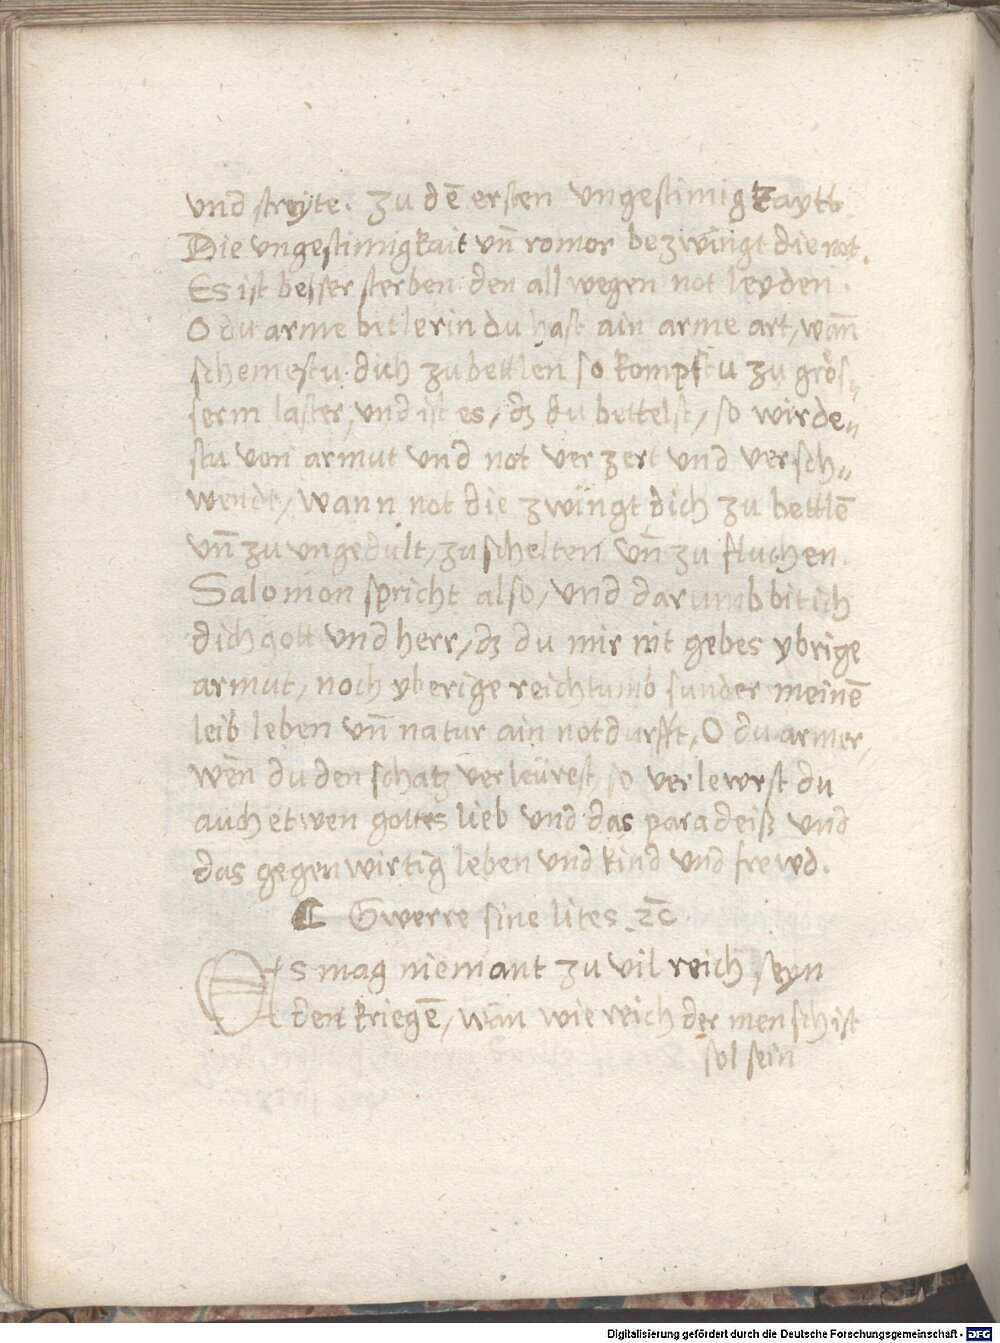 vnd streyte. zu dē ersten vngestimigkaytt
Die vngestimigkait vn̄ romor bezwingt die not.
Es ist besser sterben den all wegen not leyden.
O du arme betlerin du hast ain arme art, wan̄
schemestu dich zu bettlen so kompstu zu grös„
serm laster, vnd ist es, dz du bettelst, so wirde„
stu von armut vnd not verzert vnd versch„
wendt, wann not die zwingt dich zu bettlē
vn̄ zu vngedult, zu schelten vn̄ zu fluchen.
Salomon spricht also, vnd darumb bit ich
dich gott vnd herr, dz du mir nit gebes ybrige
armut, noch yberige reichtumb sunder meinē
leib leben vn̄ natur ain notdurfft, O du armer,
wen du den schatz verleürest, so verlewrst du
auch etwen gottes lieb vnd das paradeiß vnd
das gegenwirtig leben vnd kind vnd frewd.
C Gwerre sine lites ꝛc̄
Es mag niemant zu vil reich seyn
den kriegē, wān wie reich der mensch ist
sol sein
Digitalisierung gefördert durch die Deutsche Forschungsgemeinschaft - DFG